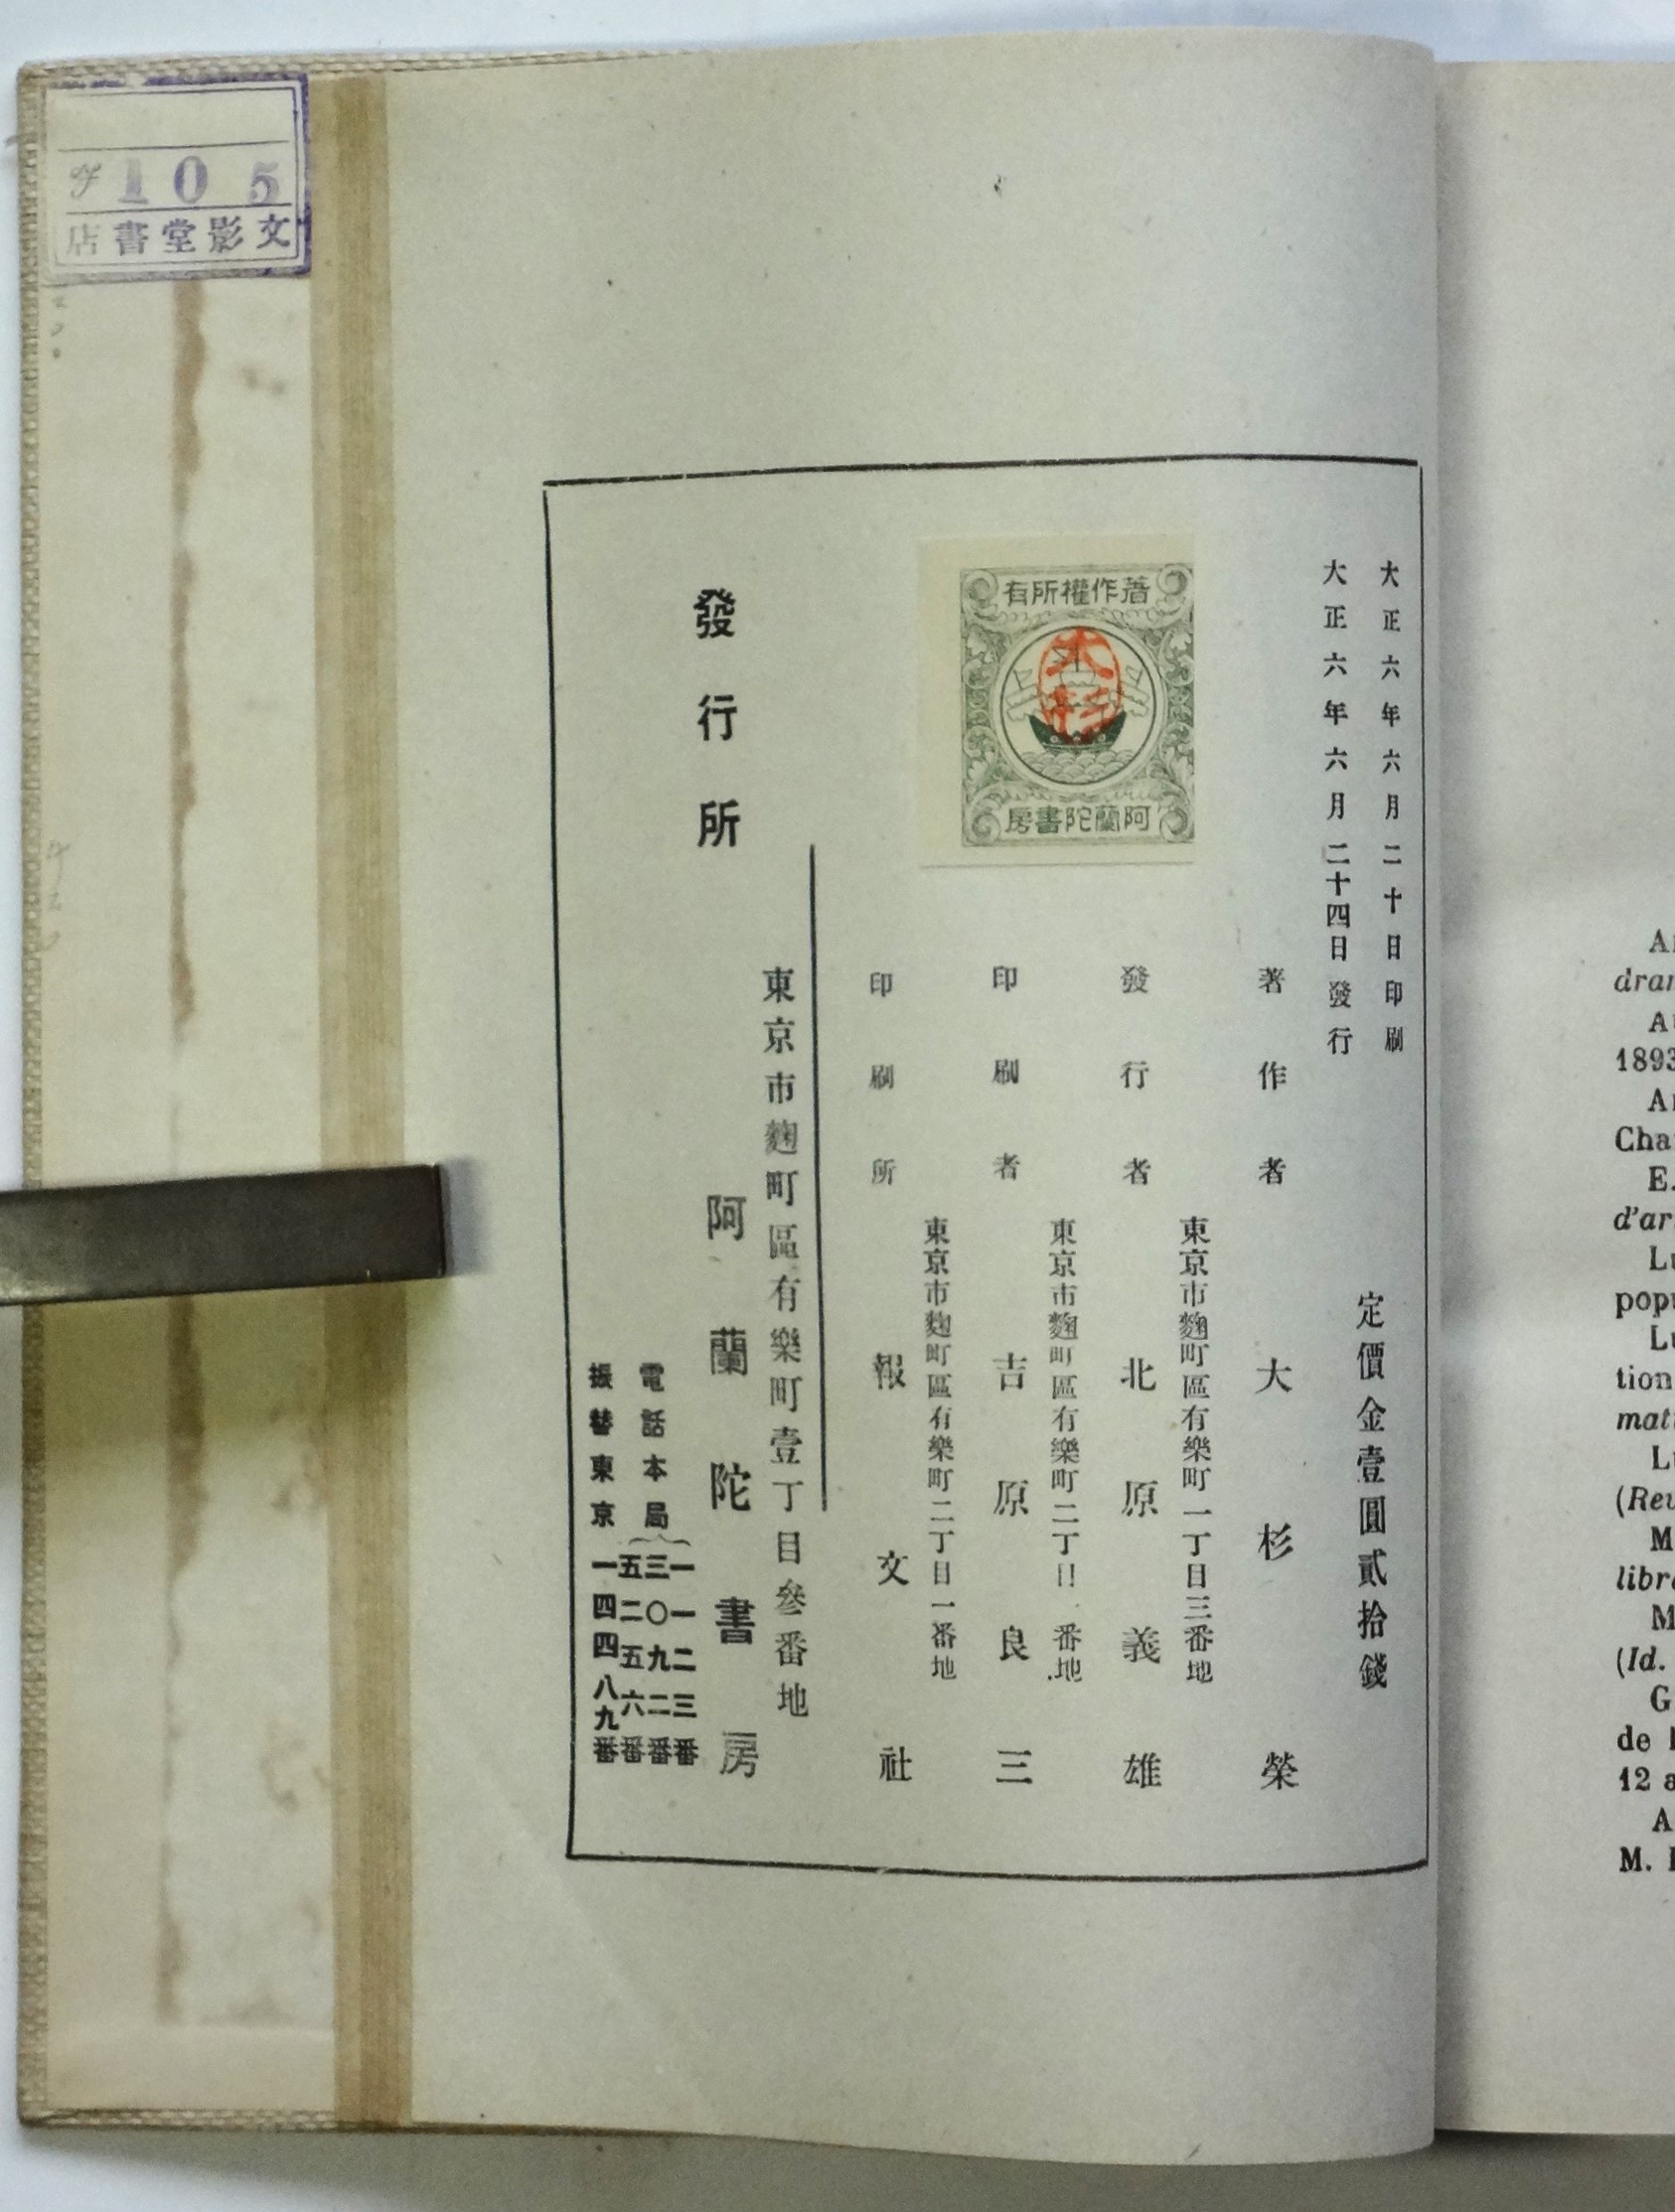 大正六年六月二十日印刷
大正六年六月二十四日發行
定價金壹圓貳拾錢
著作權所有
大杉
阿蘭陀書房
著作者 大杉榮
東京市麴町區有樂町一丁目三番地
發行者 北原義雄
東京市麴町區有樂町二丁目一番地
印刷者 吉原良三
東京市麴町區有樂町二丁目一番地
印刷所 報文社
東京市麴町區有樂町壹丁目參番地
發行所 阿蘭陀書房
電話本局
一一二三番
三〇九二番
五二五六番
振替東京一四四八九番
105
文影堂書店
dram
1893
Cha
E.
d'ar
popu
tion
mat
(Rev
M
libra
M
(Id.
G
de
12 a
A
M.